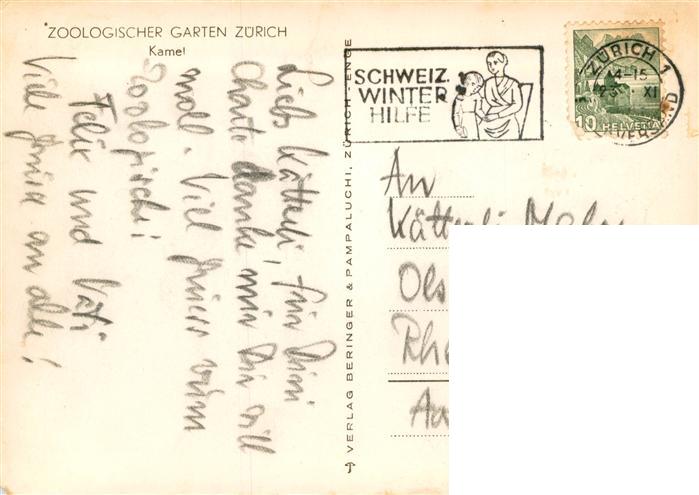 ZOOLOGISCHER GARTEN ZÜRICH
Kamel
Liebs Kätterli, für Dini
Charte danke mir Dir vill
moll. Viel Grüess vum
Zoologische!
Felix und Vati
Viele Grüsse an alle!
VERLAG BERINGER & PAMPALUCHI, ZÜRICH-ENGE
SCHWEIZ.
WINTER
HILFE
ZÜRICH 1
14-15
XI
10 HELVETIA
An
Kätterli
Ols
Rhe
Aa